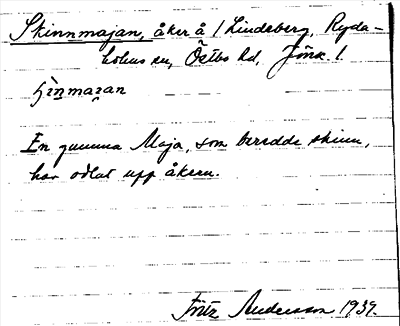 Skinnmajan, åker å 1 Lindeberg, Ryda-
holms sn, Östbo hd, Jönk. l.
En gumma Maja, som beredde skinn,
har odlat upp åkern.
Fritz Andersson 1939.